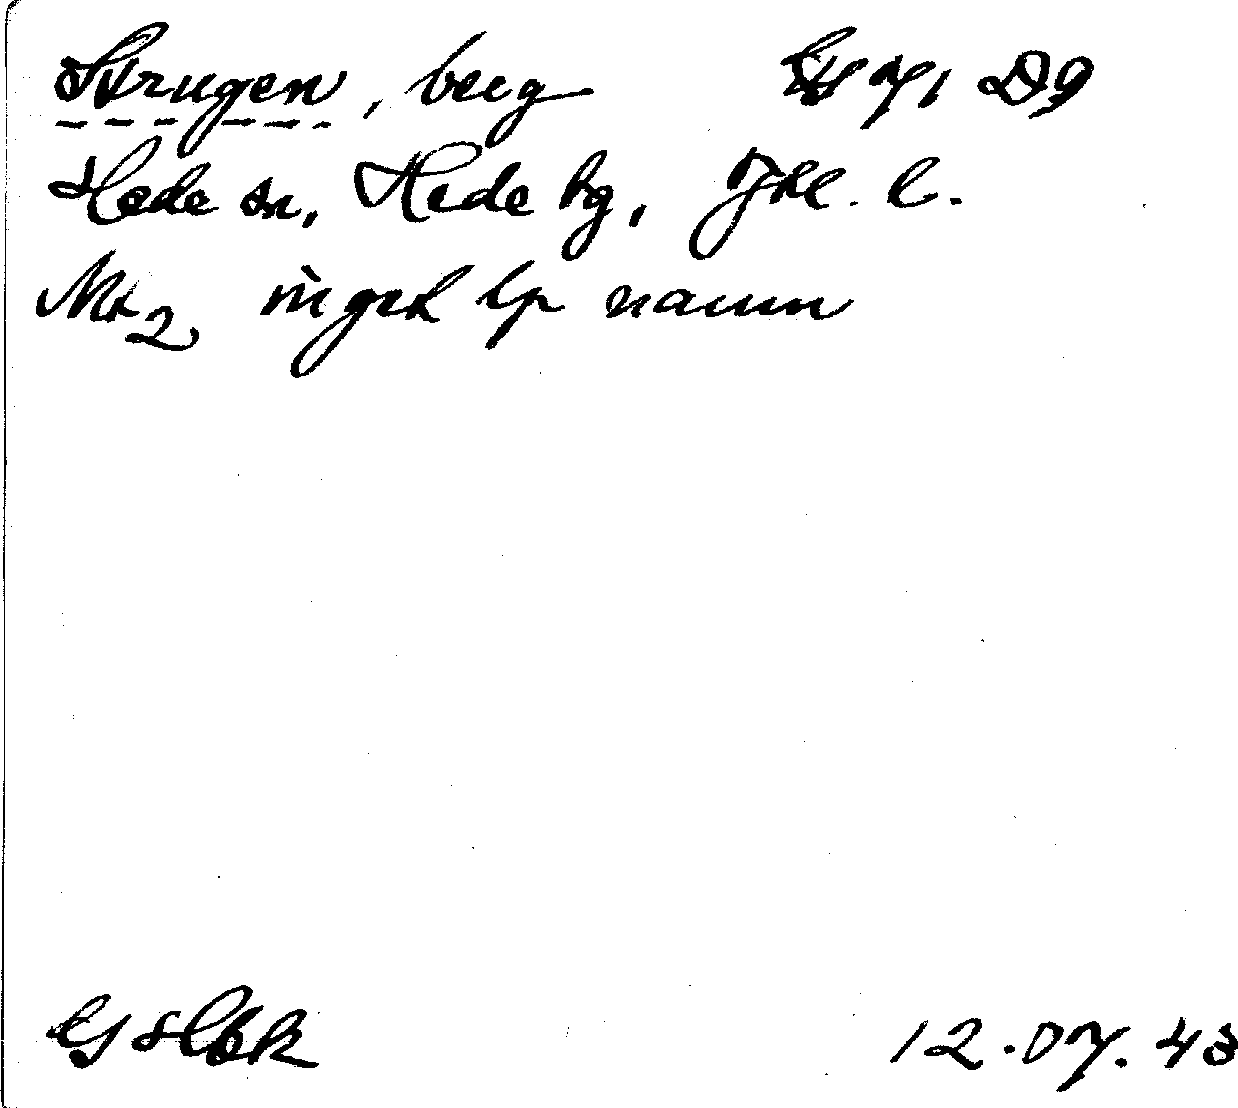 Strugen, berg G 71 D9
Hede sn, Hede by, Jkl. l.
Mt2 inget lp namn
GHbk 12.07.43